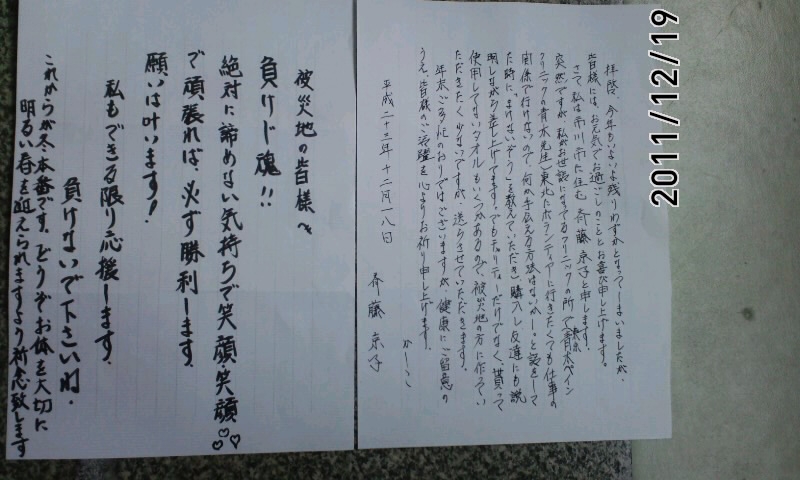 拝啓、今年もいよいよ残りわずかとなってしまいましたが、
皆様には、お元気でお過ごしのこととお喜び申し上げます。
さて、私は市川市に住む 斉藤京子と申します。
突然ですが、私がお世話になってるクリニックの所で(青木ペイン
クリニックの青木先生)東北にボランティアに行きたくても仕事の
関係で行けないので、何か手伝える方法はないかー。と話をして
た時に、「まけないぞう」を教えていただき、購入し友達にも説
明しながら差し上げてます。でもチャリティーだけでなく、貰って
使用してないタオルもいくつかあるので、被災地の方に作ってい
ただきたく少ないですが、送らさせていただきます。
年末ご多忙のおりではございますが、健康にご留意の
うえ、皆様のご活躍を心よりお祈り申し上げます。
かしこ
平成二十三年十二月一八日
斉藤京子
被災地の皆様へ
負けじ魂!!
絶対に諦めない気持ちで笑顔・笑顔
で頑張れば、必ず勝利します。
願いは叶います!
私もできる限り応援します。
負けないで下さいネ!
これからが冬本番です。どうぞお体を大切に
明るい春を迎えられますよう祈念致します
2011/12/19